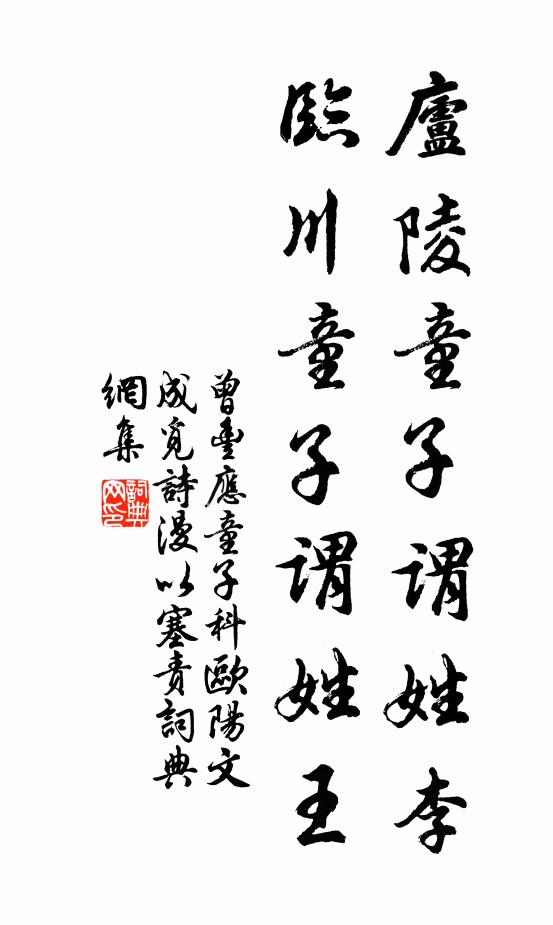 廬陵童子謂姓李
臨川童子謂姓王
曾豐應童子科歐陽文
成覓詩漫以塞責詞典
網集
詞典網印